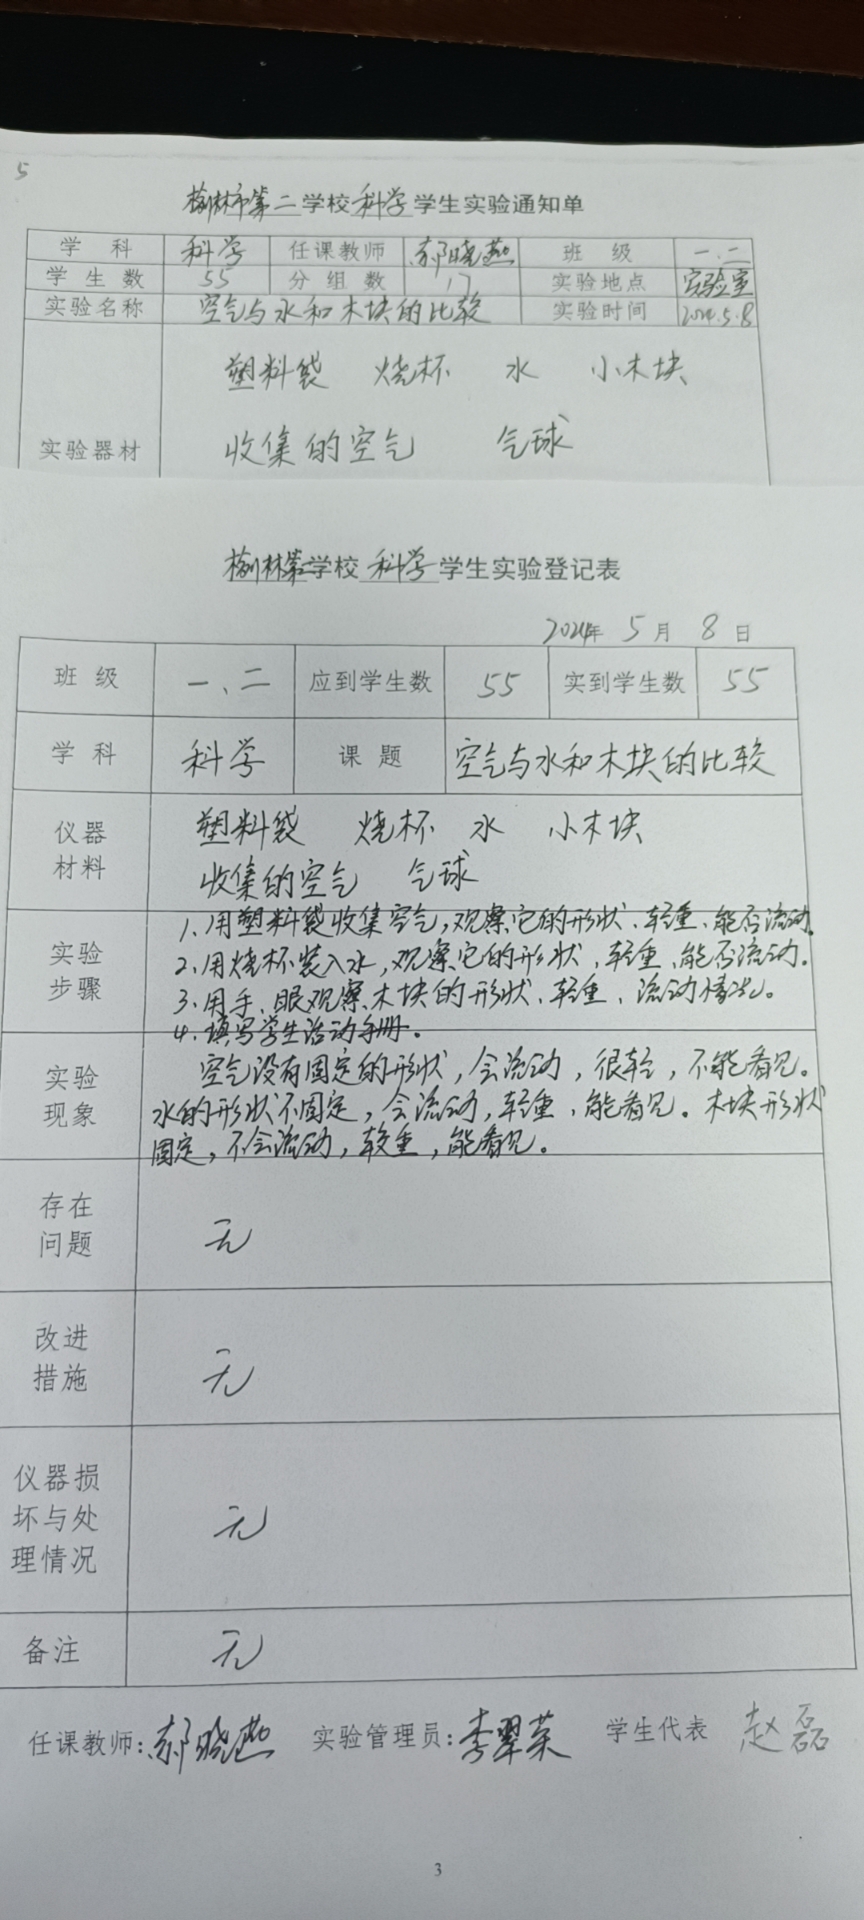 5
榆林市第二学校科学学生实验通知单
学 科 科学 任课教师 郝晓燕 班 级 一.二
学 生 数 55 分 组 数 17 实验地点 实验室
实验名称 空气与水和木块的比较 实验时间 2024.5.8
塑料袋 烧杯 水 小木块
实验器材 收集的空气 气球
榆林第二学校 科学 学生实验登记表
2024年 5 月 8 日
班 级 一、二 应到学生数 55 实到学生数 55
学 科 科学 课 题 空气与水和木块的比较
仪器材料 塑料袋 烧杯 水 小木块
收集的空气 气球
实验步骤 1、用塑料袋收集空气,观察它的形状、轻重、能否流动。
2、用烧杯装入水,观察它的形状、轻重、能否流动。
3、用手、眼观察木块的形状、轻重、流动情况。
4、填写学生活动手册。
实验现象 空气没有固定的形状,会流动,很轻,不能看见。
水的形状不固定,会流动,轻重,能看见。木块形状
固定,不会流动,较重,能看见。
存在问题 无
改进措施 无
仪器损坏与处理情况 无
备注 无
任课教师:郝晓燕 实验管理员:李翠荣 学生代表 赵磊
3